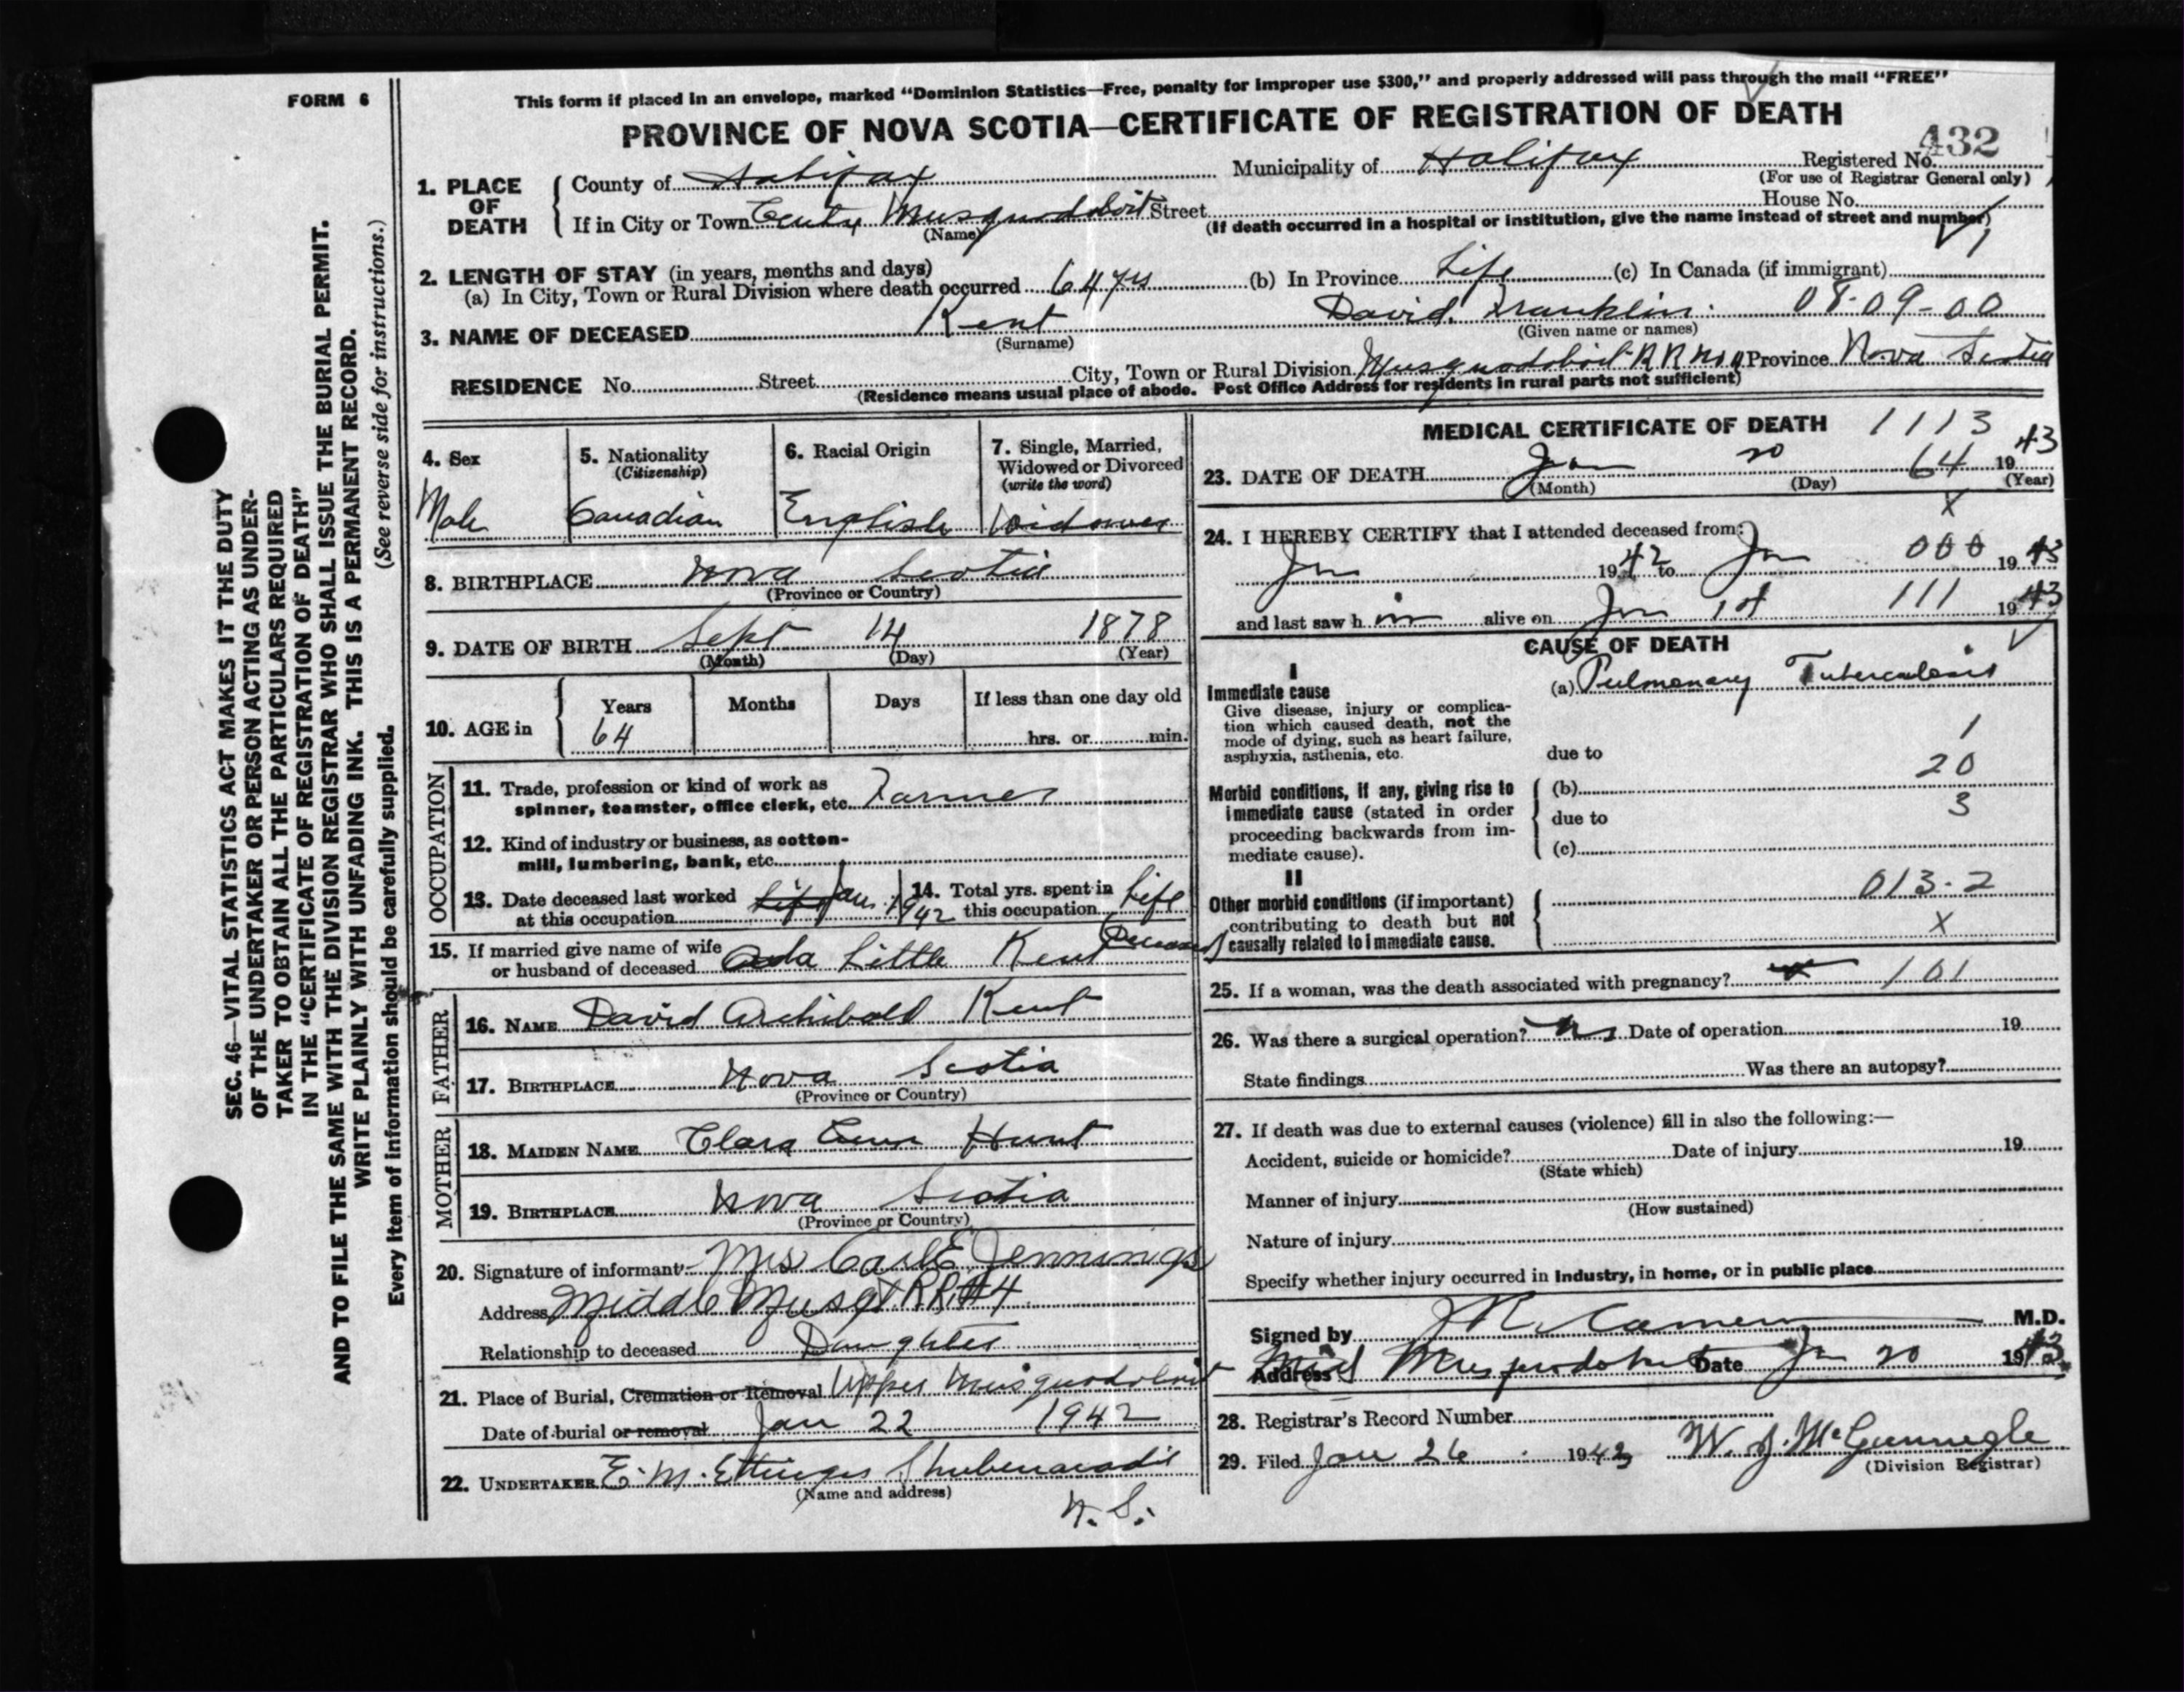 FORM 6
This form if placed in an envelope, marked "Dominion Statistics—Free, penalty for improper use $300," and properly addressed will pass through the mail "FREE"
PROVINCE OF NOVA SCOTIA—CERTIFICATE OF REGISTRATION OF DEATH
432
1. PLACE OF DEATH
County of Halifax Municipality of Halifax Registered No.
(For use of Registrar General only)
If in City or Town Centre Musquodoboit Street House No.
(Name) (If death occurred in a hospital or institution, give the name instead of street and number)
2. LENGTH OF STAY (in years, months and days)
(a) In City, Town or Rural Division where death occurred 64 yrs (b) In Province Life (c) In Canada (if immigrant)
3. NAME OF DECEASED Kent David Franklin. 08-09-00
(Surname) (Given name or names)
RESIDENCE No. Street City, Town or Rural Division Musquodoboit RR No 4 Province Nova Scotia
(Residence means usual place of abode. Post Office Address for residents in rural parts not sufficient)
4. Sex
Male
5. Nationality
(Citizenship)
Canadian
6. Racial Origin
English
7. Single, Married,
Widowed or Divorced
(write the word)
Widower
8. BIRTHPLACE Nova Scotia
(Province or Country)
9. DATE OF BIRTH Sept 14 1878
(Month) (Day) (Year)
10. AGE in
Years Months Days If less than one day old
64 hrs. or min.
OCCUPATION
11. Trade, profession or kind of work as
spinner, teamster, office clerk, etc. Farmer
12. Kind of industry or business, as cotton-
mill, lumbering, bank, etc.
13. Date deceased last worked
at this occupation Life Jan 1942
14. Total yrs. spent in
this occupation Life
15. If married give name of wife
or husband of deceased Ada Little Kent (Deceased)
FATHER
16. NAME David Archibald Kent
17. BIRTHPLACE Nova Scotia
(Province or Country)
MOTHER
18. MAIDEN NAME Clara Ann Hunt
19. BIRTHPLACE Nova Scotia
(Province or Country)
20. Signature of informant Mrs Carl E. Jennings
Address Middle Musqt RR#4
Relationship to deceased Daughter
21. Place of Burial, Cremation or Removal Upper Musquodoboit
Date of burial or removal Jan 22 1942
22. UNDERTAKER E. M. Ettinger Shubenacadie
(Name and address)
N. S.
MEDICAL CERTIFICATE OF DEATH 1113
23. DATE OF DEATH Jan 20 64 1943
(Month) (Day) (Year)
X
24. I HEREBY CERTIFY that I attended deceased from:
Jan 1942 to Jan 000 1943
and last saw h im alive on Jan 1st 111 1943
CAUSE OF DEATH
I
Immediate cause
Give disease, injury or complica-
tion which caused death, not the
mode of dying, such as heart failure,
asphyxia, asthenia, etc.
(a) Pulmonary Tuberculosis
1
due to
20
Morbid conditions, if any, giving rise to
immediate cause (stated in order
proceeding backwards from im-
mediate cause).
(b)
3
due to
(c)
II
Other morbid conditions (if important)
contributing to death but not
causally related to immediate cause.
013-2
X
25. If a woman, was the death associated with pregnancy? 101
26. Was there a surgical operation? No Date of operation 19
State findings Was there an autopsy?
27. If death was due to external causes (violence) fill in also the following:—
Accident, suicide or homicide? Date of injury 19
(State which)
Manner of injury
(How sustained)
Nature of injury
Specify whether injury occurred in Industry, in home, or in public place
Signed by M.D.
Address Mid Musquodoboit Date Jan 20 1943
28. Registrar's Record Number
29. Filed Jan 26 1943 W. J. McGunnigle
(Division Registrar)
SEC. 46—VITAL STATISTICS ACT MAKES IT THE DUTY
OF THE UNDERTAKER OR PERSON ACTING AS UNDER-
TAKER TO OBTAIN ALL THE PARTICULARS REQUIRED
IN THE "CERTIFICATE OF REGISTRATION OF DEATH"
AND TO FILE THE SAME WITH THE DIVISION REGISTRAR WHO SHALL ISSUE THE BURIAL PERMIT.
WRITE PLAINLY WITH UNFADING INK. THIS IS A PERMANENT RECORD.
Every item of information should be carefully supplied. (See reverse side for instructions.)